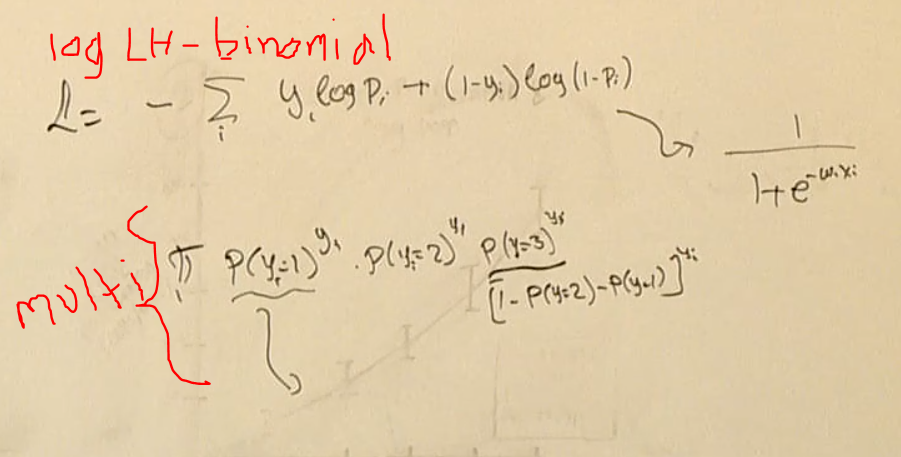 log LH-binomial
L = - Σ_i y_i log p_i + (1-y_i) log (1-p_i)
1 / (1+e^{-w_i x_i})
multi { Π_i P(y_i=1)^{y_i} . P(y_i=2)^{y_i} P(y=3)^{y_i}
[1-P(y=2)-P(y=1)]^{y_i}